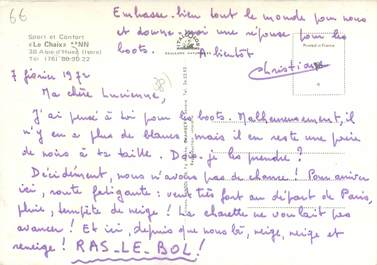 66
Embrasse bien tout le monde pour nous
et donne moi une réponse pour les
boots. A bientôt
Christiane
Sport et Confort
«Le Chaix» **NN
38 Alpe d'Huez (Isère)
Tél (76) 80.30.22
7 février 1972
Ma chère Lucienne,
J'ai pensé à toi pour les boots. Malheureusement, il
n'y en a plus de blancs, mais il en reste une paire
de noirs à ta taille. Dois-je les prendre ?
Décidément, nous n'avons pas de chance ! Pour arriver
ici, route fatigante : vent très fort au départ de Paris,
pluie, tempête de neige ! La charette ne voulait pas
avancer ! Et ici, depuis que nous là, neige, neige et
reneige ! RAS-LE-BOL !